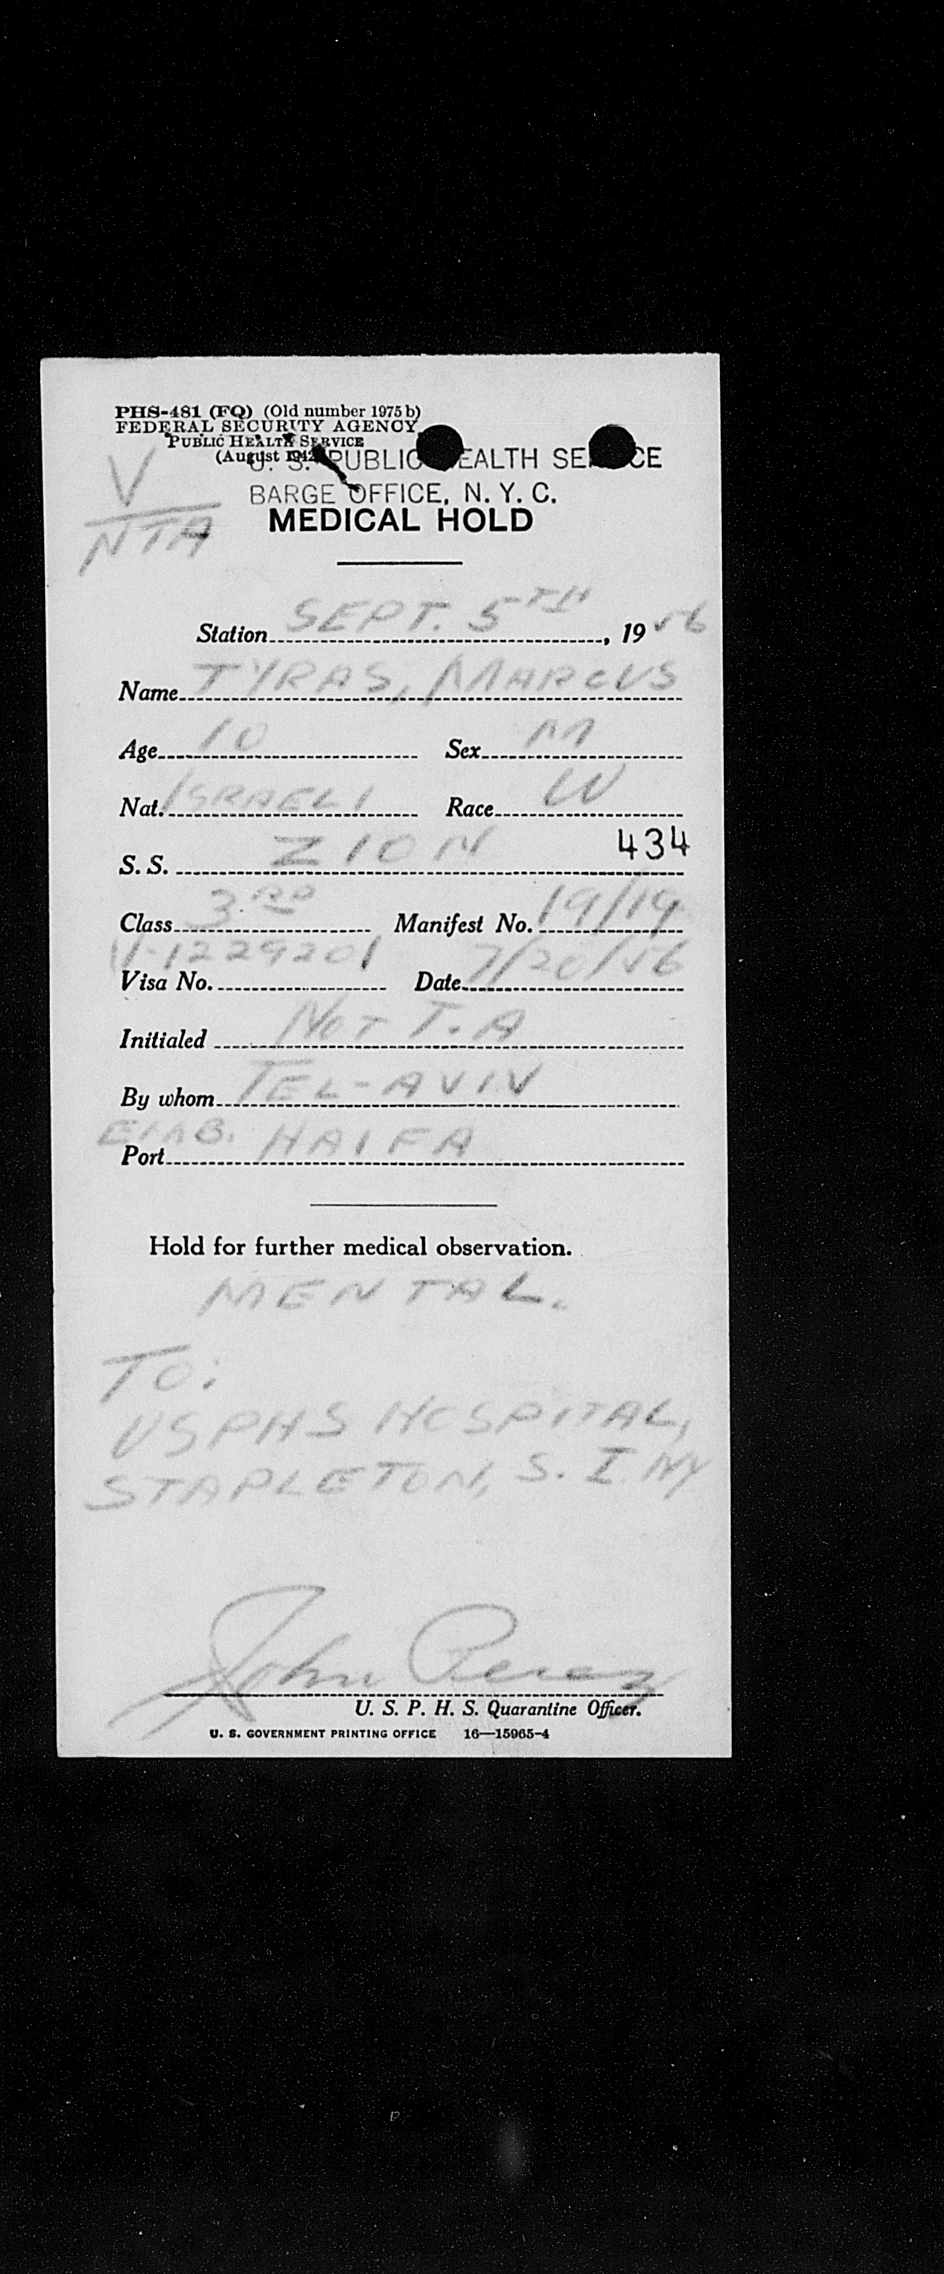 PHS-481 (FQ) (Old number 1975b)
FEDERAL SECURITY AGENCY
PUBLIC HEALTH SERVICE
(August 1942)
U. S. PUBLIC HEALTH SERVICE
BARGE OFFICE, N. Y. C.
V
NTA
MEDICAL HOLD
Station SEPT. 5TH, 1956
Name TYRAS, MARCUS
Age 10 Sex M
Nat. ISRAELI Race W
S. S. ZION 434
Class 3RD Manifest No. 19/19
Visa No. V-1229201 Date 7/20/56
Initialed NOT T.A
By whom TEL-AVIV
EMB.
Port HAIFA
Hold for further medical observation.
MENTAL.
TO:
USPHS HOSPITAL,
STAPLETON, S. I. NY
John Perez
U. S. P. H. S. Quarantine Officer.
U. S. GOVERNMENT PRINTING OFFICE 16—15965-4